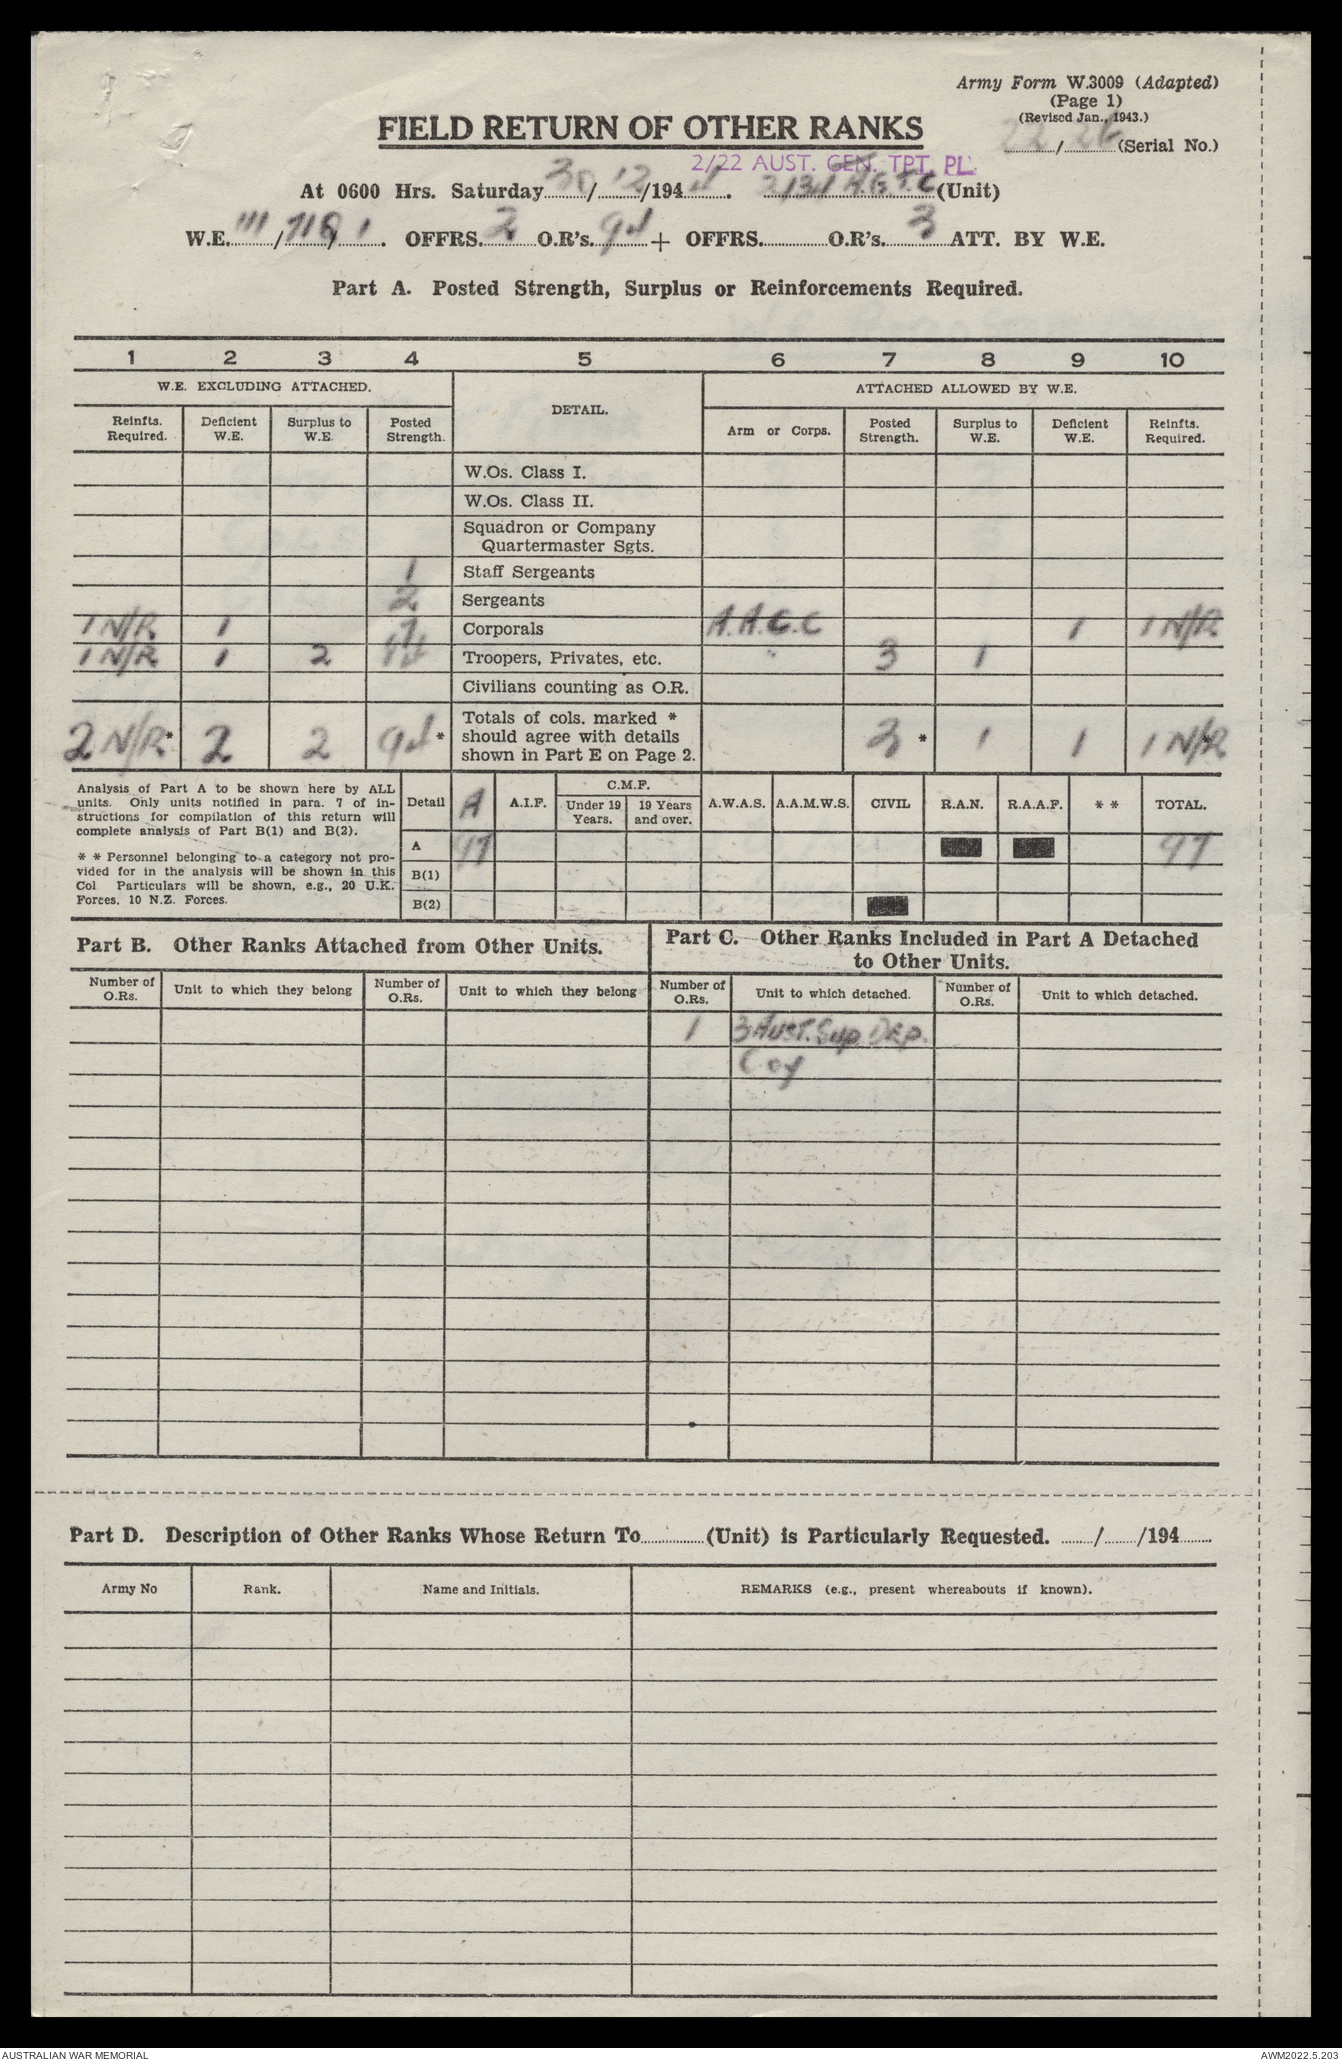 Army Form W.3009 (Adapted)
(Page 1)
(Revised Jan., 1943.)
FIELD RETURN OF OTHER RANKS
22/26 (Serial No.)
2/22 AUST. GEN. TPT. PL.
At 0600 Hrs. Saturday 30/12/1944. 2/31 A.G.T.C (Unit)
W.E. 111/ / 1. OFFRS. 2 O.R's. 94 + OFFRS. O.R's. 3 ATT. BY W.E.
Part A. Posted Strength, Surplus or Reinforcements Required.
1 2 3 4 5 6 7 8 9 10
W.E. EXCLUDING ATTACHED. DETAIL. ATTACHED ALLOWED BY W.E.
Reinfts. Required. Deficient W.E. Surplus to W.E. Posted Strength. Arm or Corps. Posted Strength. Surplus to W.E. Deficient W.E. Reinfts. Required.
W.Os. Class I.
W.Os. Class II.
Squadron or Company
Quartermaster Sgts.
1 Staff Sergeants
2 Sergeants
1 N/R 1 7 Corporals A.A.C.C 1 1 N/R
1 N/R 1 2 Troopers, Privates, etc. " 3 1
Civilians counting as O.R.
Totals of cols. marked *
should agree with details
shown in Part E on Page 2.
2 N/R* 2 2 94* 3* 1 1 1 N/R*
Analysis of Part A to be shown here by ALL
units. Only units notified in para. 7 of in-
structions for compilation of this return will
complete analysis of Part B(1) and B(2).
* * Personnel belonging to a category not pro-
vided for in the analysis will be shown in this
Col. Particulars will be shown, e.g., 20 U.K.
Forces, 10 N.Z. Forces.
Detail A A.I.F. C.M.F. Under 19 Years. 19 Years and over. A.W.A.S. A.A.M.W.S. CIVIL R.A.N. R.A.A.F. * * TOTAL.
A 97 97
B(1)
B(2)
Part B. Other Ranks Attached from Other Units.
Part C. Other Ranks Included in Part A Detached
to Other Units.
Number of O.Rs. Unit to which they belong Number of O.Rs. Unit to which they belong Number of O.Rs. Unit to which detached. Number of O.Rs. Unit to which detached.
1 3 AUST. Sup. DEP.
Coy
Part D. Description of Other Ranks Whose Return To (Unit) is Particularly Requested. / /194
Army No Rank. Name and Initials. REMARKS (e.g., present whereabouts if known).
AUSTRALIAN WAR MEMORIAL AWM2022.5.203